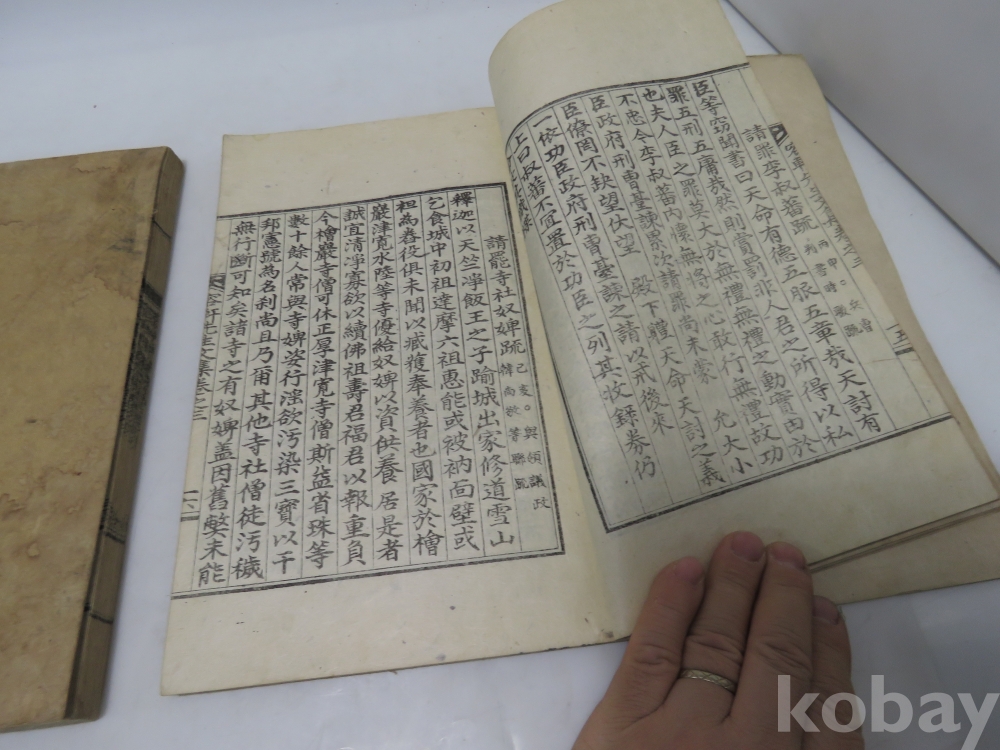 容軒先生文集卷之三 十五
請罪李叔蕃疏
臣等竊聞書曰天命有德五服五章哉天討有
罪五刑五庸哉然則賞罰非人君之所得以私
也夫人臣之罪莫大於無禮無禮之動實由於
不忠今李叔蕃內懷無將之心敢行無禮故功
臣政府刑曹臺諫累次請罪尚未蒙 允大小
臣僚罔不缺望伏望 殿下體天命天討之義
一依功臣政府刑曹臺諫之請以戒後來
上曰叔蕃不宜置於功臣之列其收錄券仍
請罷寺社奴婢疏 己亥○與領議政韓尚敬等聯疏
釋迦以天竺凈飯王之子踰城出家修道雪山
乞食城中初祖達摩六祖惠能或被衲面壁或
祖為舂役俱未聞以臧獲奉養者也國家於檜
巖津寬水陸等寺優給奴婢以資供養居是者
誠宜清凈寡欲以續佛祖壽君福君以報重負
今檜巖寺僧可休正厚津寬寺僧斯益省珠等
數十餘人常與寺婢姿行淫欲汚染三寶以干
邦憲號為名刹尚且乃爾其他寺社僧徒汚穢
無行斷可知矣諸寺之有奴婢盖因舊弊未能
容軒先生文集卷之三 十六
kobay